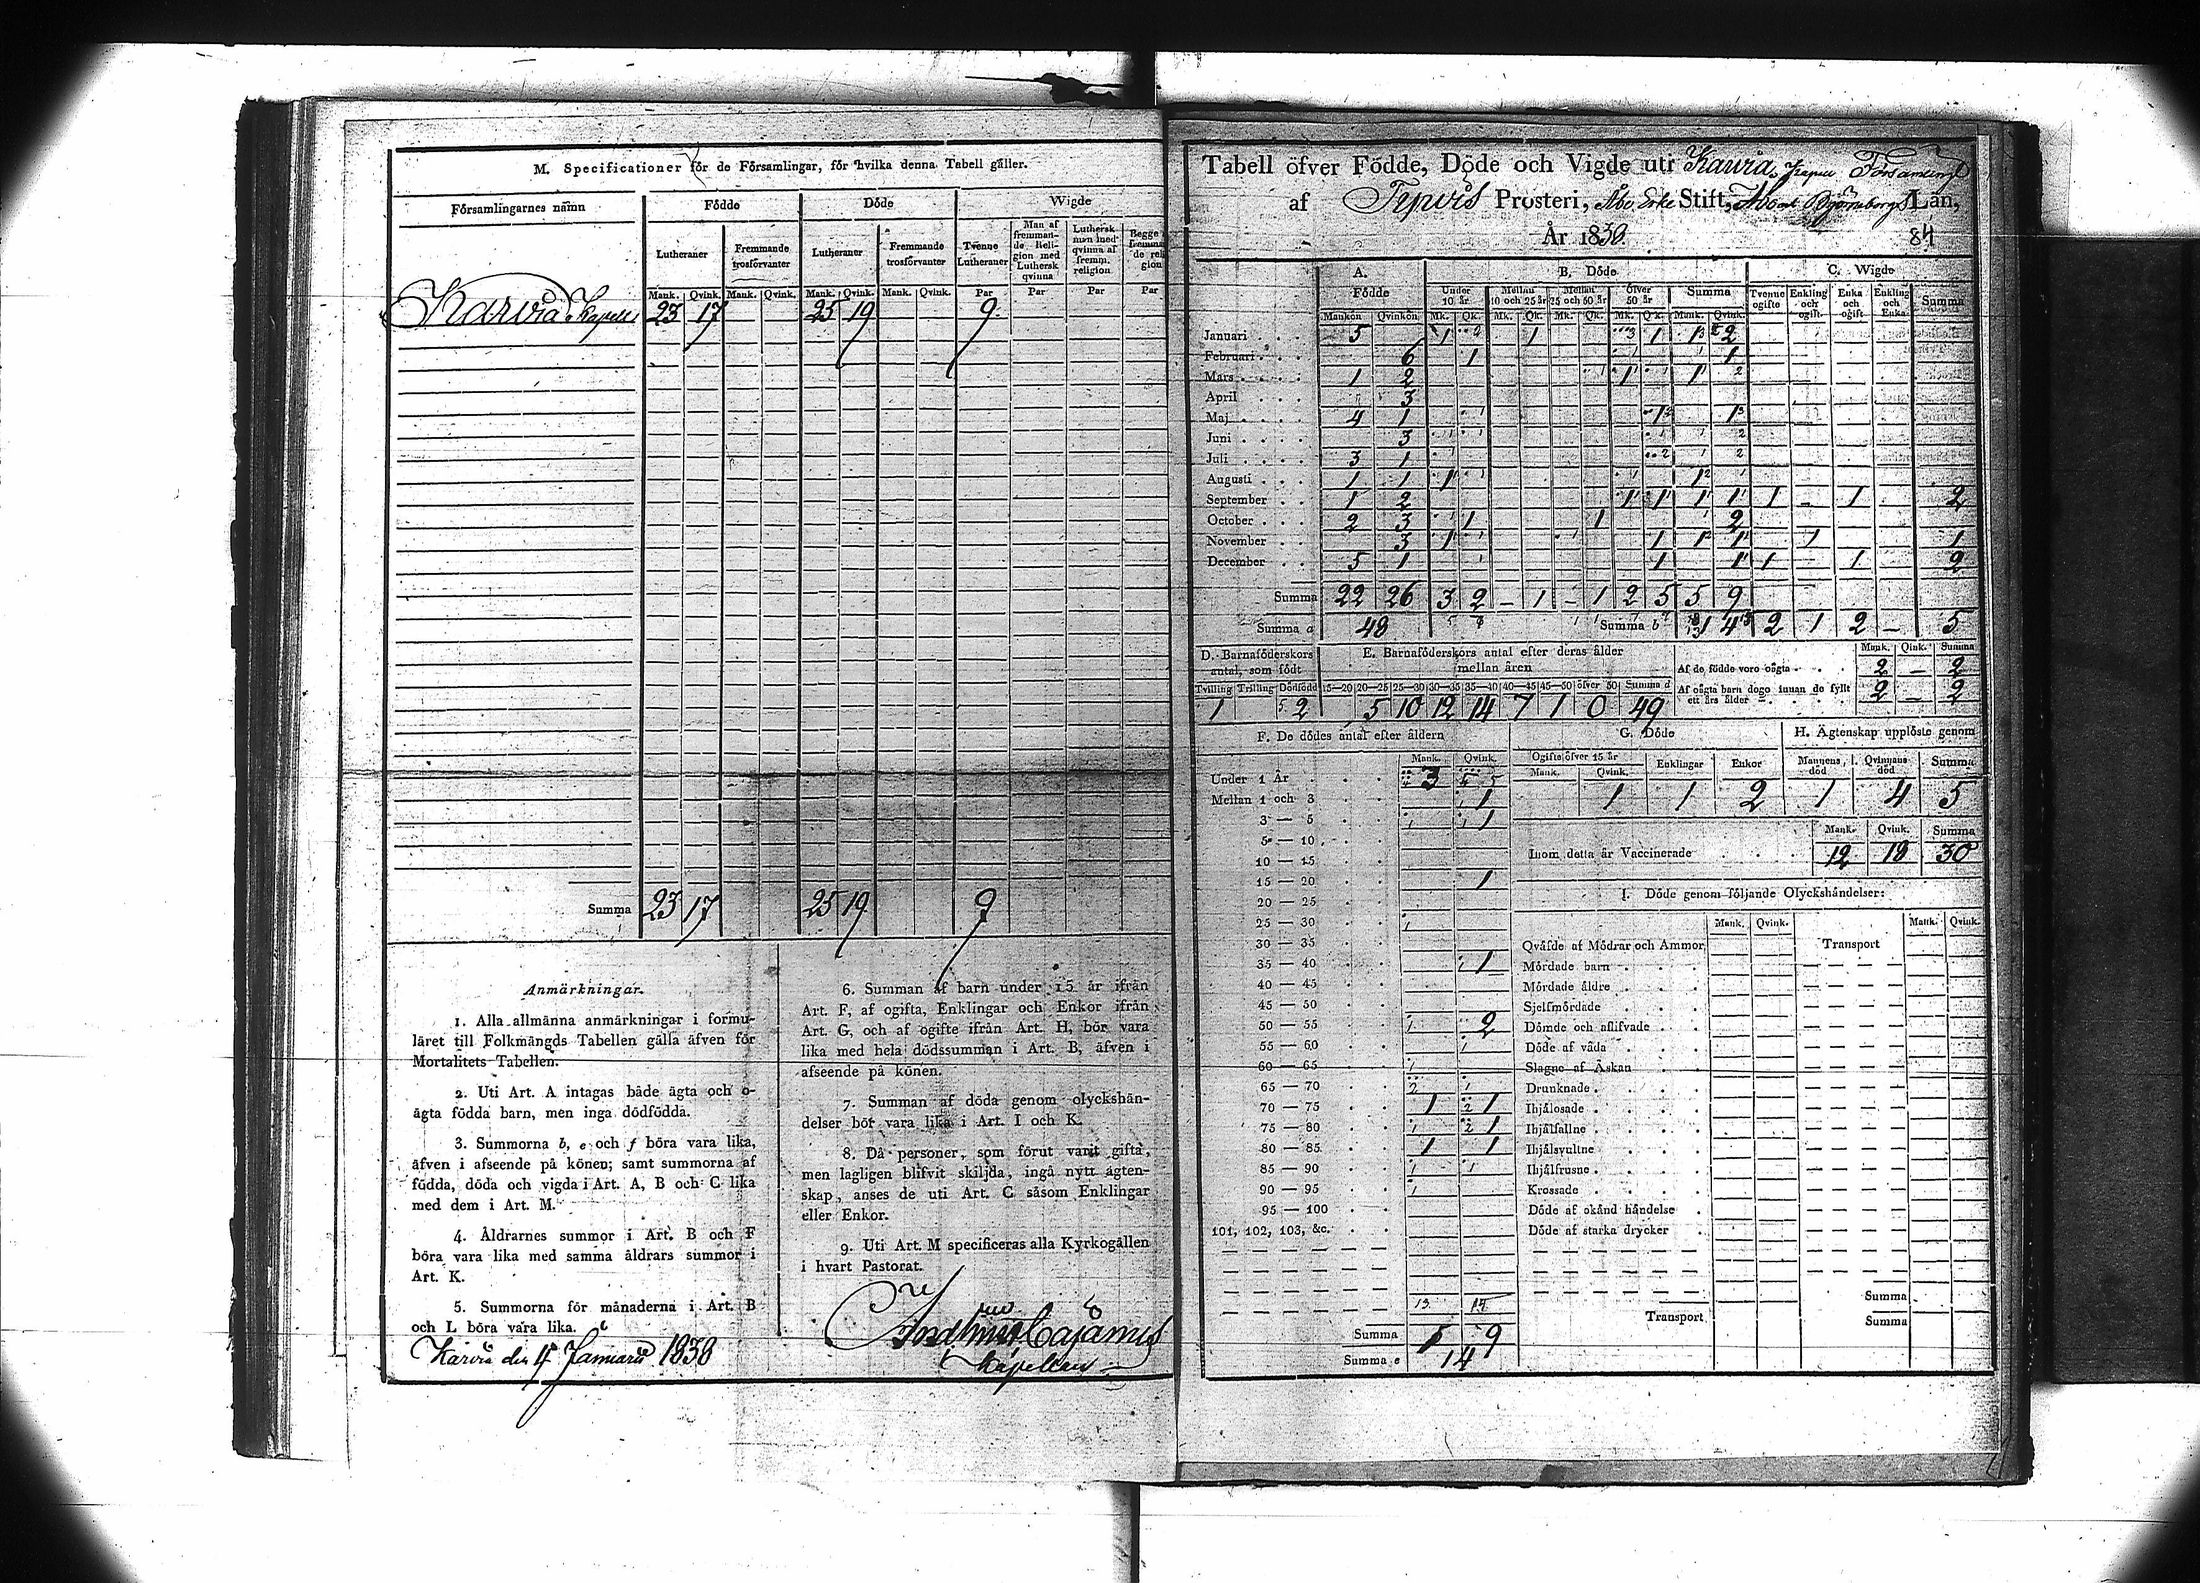 M. Specificationer för de Församlingar, för hvilka denna Tabell gäller.
Församlingarnes nämn Födde Döde Wigde
Lutheraner Fremmande trosförvanter Lutheraner Fremmande trosförvanter Tvenne Lutheraner Man af fremmande Religion med Luthersk qvinna Luthersk man med qvinna af fremm. religion Begge fremman de reli gion
Mank. Qvink. Mank. Qvink. Mank. Qvink. Mank. Qvink. Par Par Par Par
Karvia Kapell 23 17 25 19 9
Summa 23 17 25 19 9
Anmärkningar.
1. Alla allmänna anmärkningar i formu-
läret till Folkmängds Tabellen gälla äfven för
Mortalitets Tabellen.
2. Uti Art. A intagas både ägta och o-
ägta födda barn, men inga dödfödda.
3. Summorna b, e och f böra vara lika,
äfven i afseende på könen; samt summorna af
födda, döda och vigda i Art. A, B och C lika
med dem i Art. M.
4. Åldrarnes summor i Art. B och F
böra vara lika med samma åldrars summor i
Art. K.
5. Summorna för månaderna i Art. B
och L böra vara lika.
Karvia den 4 Januarii 1838
6. Summan af barn under 15 år ifrån
Art. F, af ogifta, Enklingar och Enkor ifrån
Art. G, och af ogifte ifrån Art. H, bör vara
lika med hela dödssumman i Art. B, äfven i
afseende på könen.
7. Summan af döda genom olyckshän-
delser bör vara lika i Art. I och K.
8. Då personer, som förut varit gifta,
men lagligen blifvit skiljda, ingå nytt ägten-
skap, anses de uti Art. C såsom Enklingar
eller Enkor.
9. Uti Art. M specificeras alla Kyrkogällen
i hvart Pastorat.
Cajanus
Kapellan
Tabell öfver Födde, Döde och Vigde uti Karvia Kapell Församling
af Prosteri, Åbo Erke Stift, Åbo och Björneborgs Län,
År 1830. 84
A. B. Döde C. Wigde
Födde Under 10 år Mellan 10 och 25 år Mellan 25 och 50 år öfver 50 år Summa Tvenne ogifte Enkling och ogift Enka och ogift Enkling och Enka Summa
Mankön Qvinkön Mk. Qk. Mk. Qk. Mk. Qk. Mk. Qk. Mank. Qvink.
Januari 5 1 1 1 1 2
Februari 6 1 1
Mars 1 2 1 1
April 3
Maj 4 1 1 1
Juni 3
Juli 3 1
Augusti 1 1 1 1
September 1 2 1 1 1 1 1 - 1 2
October 2 3 1 1 2
November 3 1 1 1 1 1 1
December 5 1 1 1 1 1 2
Summa 22 26 3 2 - 1 - 1 2 5 5 9
Summa a 48 Summa b 14 2 1 2 - 5
D. Barnaföderskors antal, som födt E. Barnaföderskors antal efter deras ålder mellan åren Mank. Qink. Summa
Af de födde voro oägta 2 - 2
Af oägta barn dogo innan de fyllt ett års ålder 2 - 2
Tvilling Trilling Dödfödd 15-20 20-25 25-30 30-35 35-40 40-45 45-50 öfver 50 Summa d
1 2 5 10 12 14 7 1 0 49
F. De dödes antal efter åldern
Mank. Qvink.
Under 1 År 3
Mellan 1 och 3 1
3 — 5 1
5 — 10
10 — 15
15 — 20 1
20 — 25
25 — 30
30 — 35
35 — 40 1
40 — 45
45 — 50
50 — 55 2
55 — 60
60 — 65
65 — 70
70 — 75 1 1
75 — 80 1
80 — 85 1 1
85 — 90
90 — 95
95 — 100
101, 102, 103, &c.
Summa 5 9
Summa e 14
G. Döde H. Ägtenskap upplöste genom
Ogifte öfver 15 år Enklingar Enkor Mannens död Qvinnans död Summa
Mank. Qvink.
1 1 2 1 4 5
Mank. Qvink. Summa
Inom detta år Vaccinerade 12 18 30
I. Döde genom följande Olyckshändelser:
Mank. Qvink. Mank. Qvink.
Qväfde af Mödrar och Ammor Transport
Mördade barn
Mördade äldre
Sjelfmördade
Dömde och aflifvade
Döde af våda
Slagne af Åskan
Drunknade
Ihjälosade
Ihjälfallne
Ihjälsvultne
Ihjälfrusne
Krossade
Döde af okänd händelse
Döde af starka drycker
Summa
Transport Summa